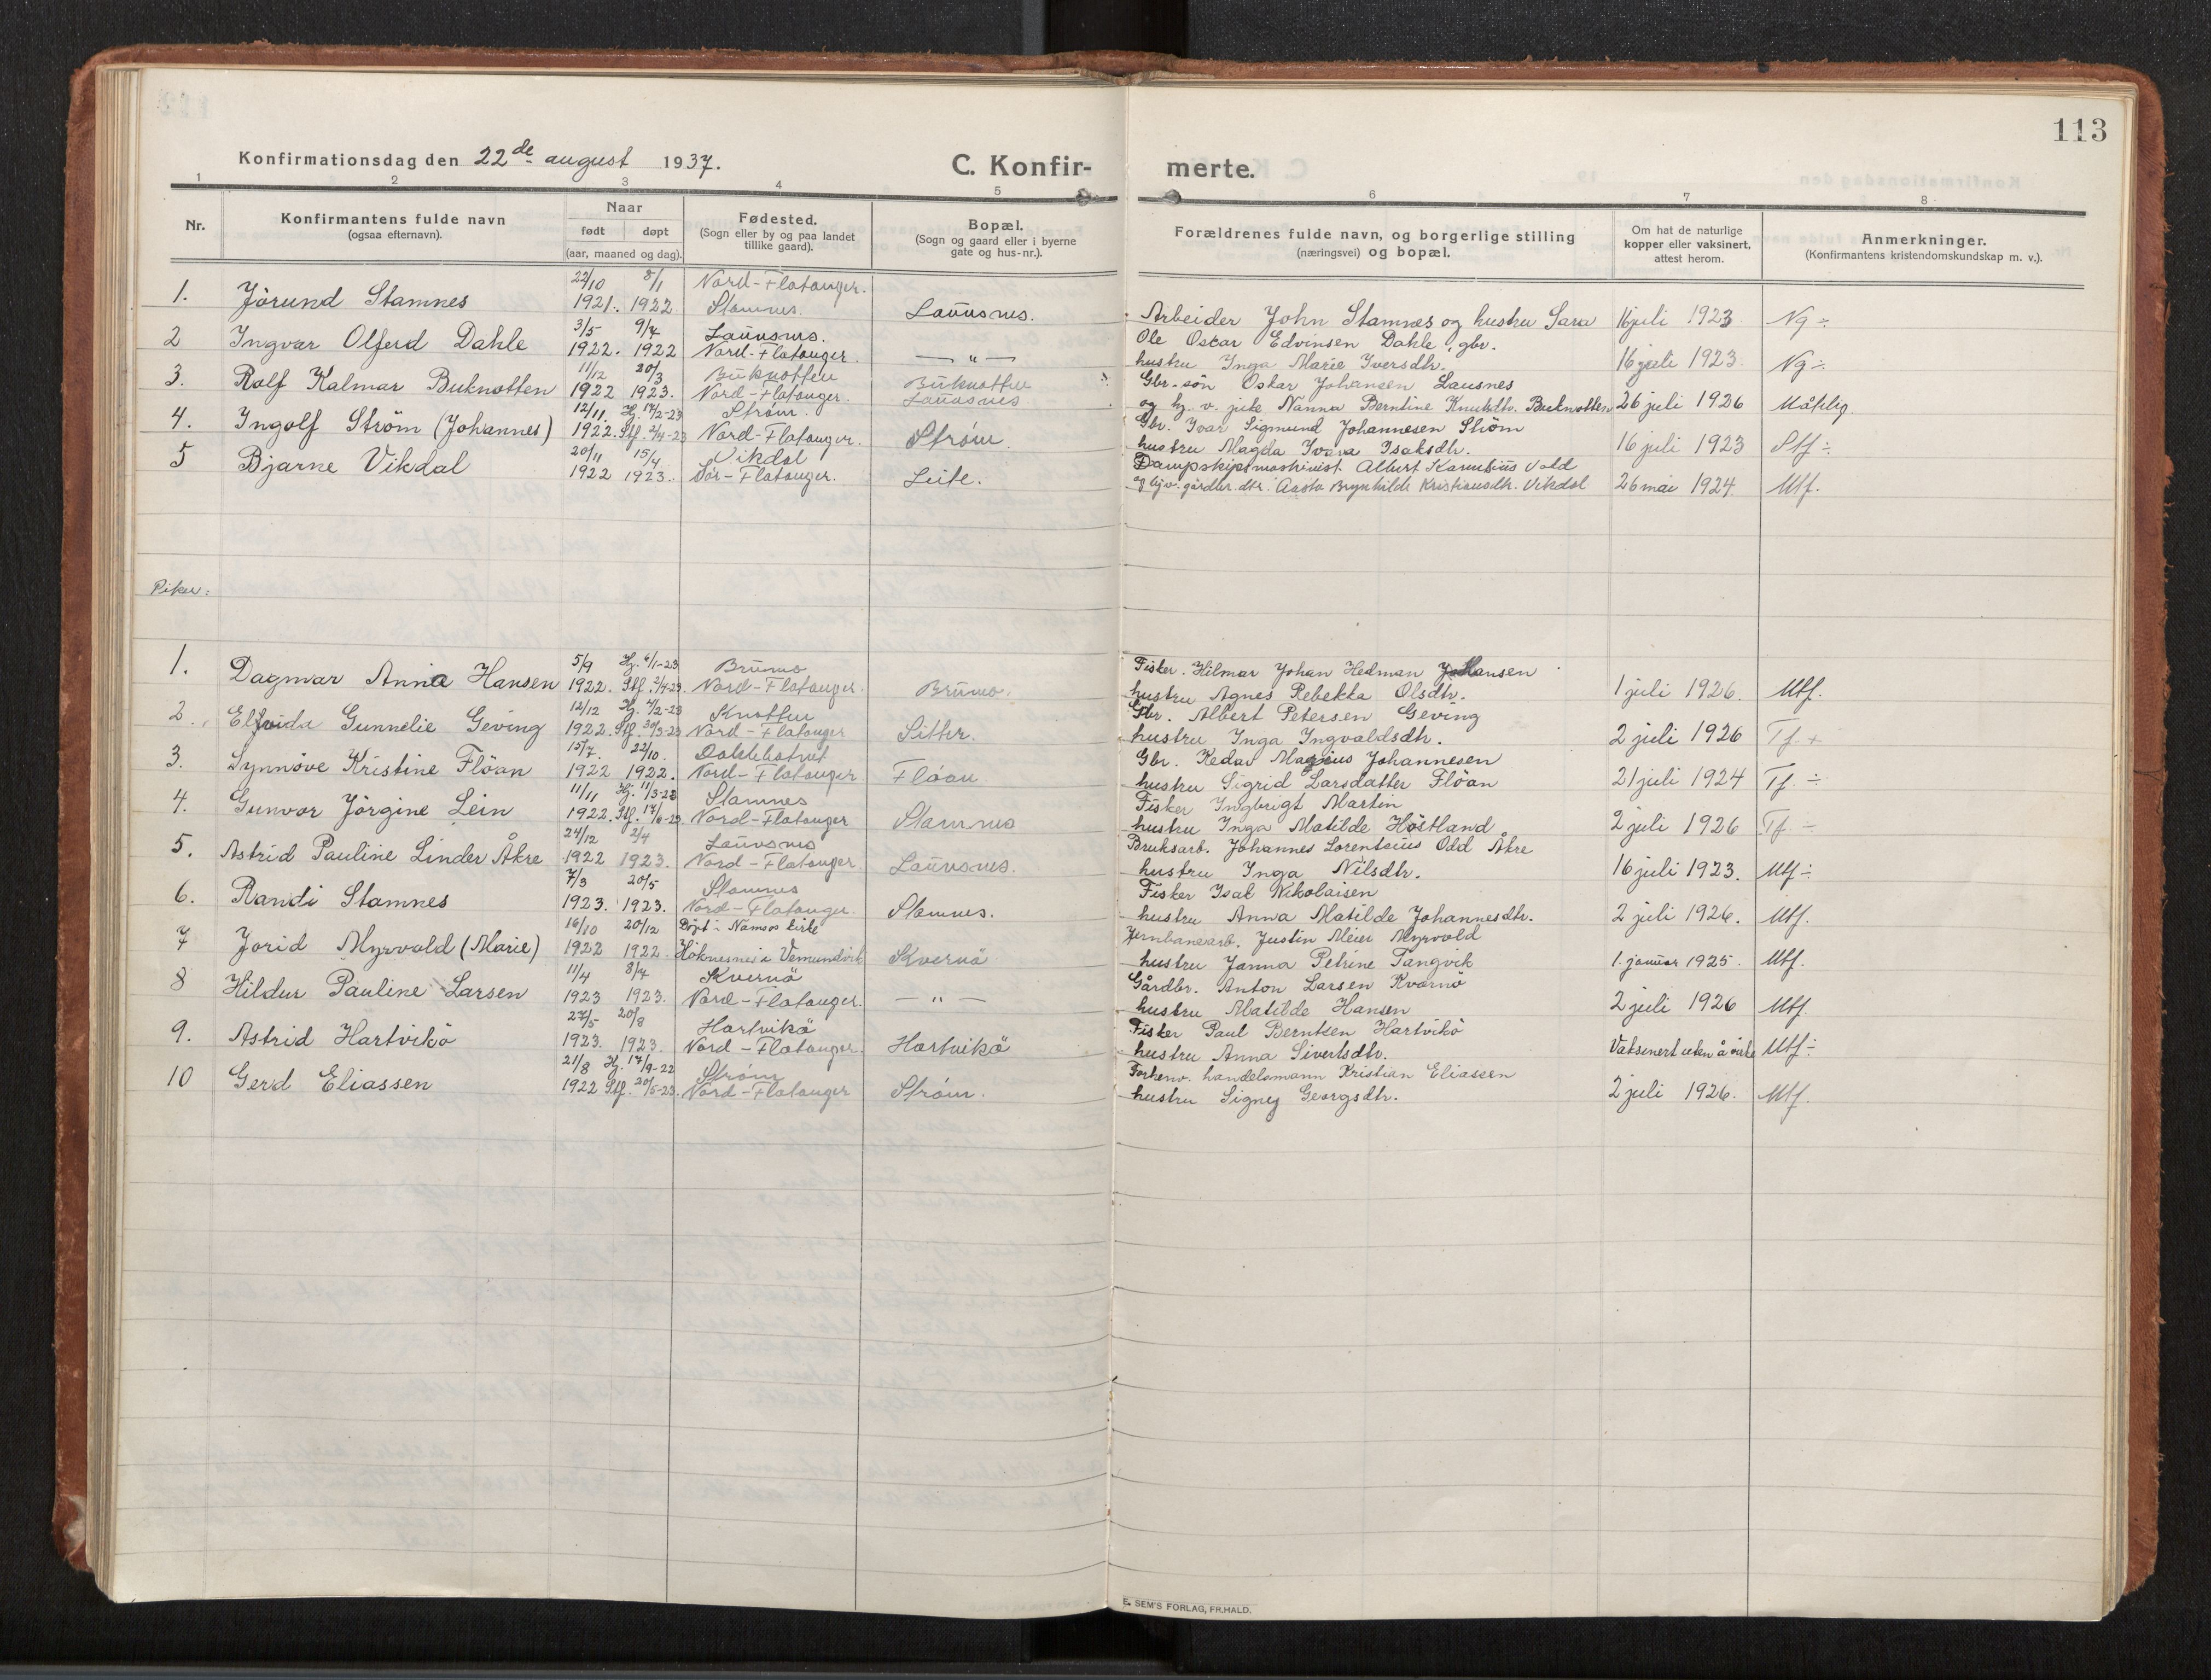 113
Konfirmationsdag den 22de august 1937.
C. Konfir-
merte.
1 2 3 4 5 6 7 8
Nr.
Konfirmantens fulde navn
(ogsaa efternavn).
Naar
født døpt
(aar, maaned og dag).
Fødested.
(Sogn eller by og paa landet
tillike gaard).
Bopæl.
(Sogn og gaard eller i byerne
gate og hus-nr.).
Forældrenes fulde navn, og borgerlige stilling
(næringsvei) og bopæl.
Om hat de naturlige
kopper eller vaksinert,
attest herom.
Anmerkninger.
(Konfirmantens kristendomskundskap m. v.).
22/10 8/1 Nord-Flatanger.
1. Jörund Stamnes 1921. 1922 Stamnes. Lauvsnes. Arbeider John Stamnes og hustru Sara 16 juli 1923 Ng ÷
3/5 9/7 Lauvsnes. Ole Oskar Edvinsen Dahle, gbr.
2 Ingvar Olferd Dahle 1922. 1922 Nord-Flatanger. — " — hustru Inga Marie Iversdtr. 16 juli 1923. Ng ÷
11/12 20/3 Buknotten Buknotten Gbr.-sön Oskar Johansen Lausnes
3. Rolf Kalmar Buknotten 1922 1923. Nord-Flatanger. Lauvsnes og hj. v. pike Nanna Berntine Knutsdtr. Buknotten 26 juli 1926 Måtelig.
12/11. Hj. 17/2-23 Strøm. Gbr. Ivar Sigmund Johannesen Ström
4. Ingolf Ström (Johannes) 1922. Stf. 2/4-23 Nord-Flatanger. Strøm. hustru Magda Ivara Isaksdtr. 16 juli 1923 Stf ÷
20/11 15/4 Vikdal Dampskipsmaskinist Albert Vold
5 Bjarne Vikdal 1922 1923. Sör-Flatanger. Leite. og ugv. gårdbr. dtr. Aasta Brynhilde Kristiansdtr. Vikdal 26 mai 1924. Mtf.
Piker:
5/9 Hj. 6/1-23 Brumo Fisker. Hilmar Johan Hedman Johansen
1. Dagmar Anna Hansen 1922. Stf. 2/4-23 Nord-Flatanger. Brumo. hustru Agnes Rebekka Olsdtr. 1 juli 1926. Mtf.
12/12 Hj. 4/2-23 Knotten Gbr. Albert Petersen Geving
2. Elfrida Gunnelie Geving 1922. Stf. 30/3-23 Nord-Flatanger Sitter. hustru Inga Ingvaldsdtr. 2 juli 1926 Tf. +
15/7. 22/10. Gbr. Kedar Magnus Johannesen
3. Synnöve Kristine Flöan 1922 1922. Nord-Flatanger Flöan hustru Sigrid Larsdatter Flöan 21 juli 1924 Tf. ÷
11/11 Hj. 11/3-23 Stamnes Fisker Ingbrigt Martin
4. Gunvor Jörgine Lein 1922. Stf. Nord-Flatanger Stamnes hustru Inga Matilde Höstland 2 juli 1926 Tf ÷
24/12 2/4 Lauvsnes Bruksarb. Johannes Lorentsius Odd Åkre
5. Astrid Pauline Linder Åkre 1922 1923. Nord-Flatanger Lauvsnes. hustru Inga Nilsdtr. 16 juli 1923. Mtf ÷
7/3 20/5 Stamnes Fisker Isak Nikolaisen
6. Randi Stamnes 1923. 1923. Nord-Flatanger. Stamnes. hustru Anna Matilde Johannesdtr. 2 juli 1926. Mtf.
16/10 20/12 Döpt i Namsos kirke Jernbanearb. Justin Meier Myrvold
7 Jorid Myrvold (Marie) 1922 1922. Höknesne i Vemundvik Kvernö hustru Janna Petrine Tangvik 1. januar 1925. Mtf.
11/4 8/7 Kvernö Gårdbr. Anton Larsen Kvernö
8 Hildur Pauline Larsen 1923 1923. Nord-Flatanger. — " — hustru Matilde Hansen 2 juli 1926 Mtf.
27/5 20/8 Hartvikö Fisker Paul Berntsen Hartvikö
9. Astrid Hartvikö 1923. 1923. Nord-Flatanger. Hartvikö hustru Anna Sivertsdtr. Vaksinert uten å virke Mtf ÷
21/8 Hj. 17/9-22 Strøm Forhenv. handelsmann Kristian Eliassen
10 Gerd Eliassen 1922 Stf. 20/5-23. Nord-Flatanger Strøm. hustru Signey Georgsdtr. 2 juli 1926. Mtf.
E. SEM'S FORLAG, FR.HALD.